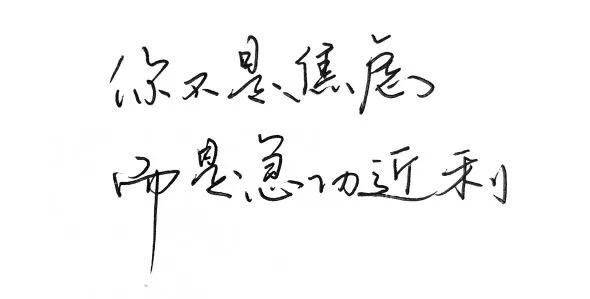 你不是焦虑
而是急功近利